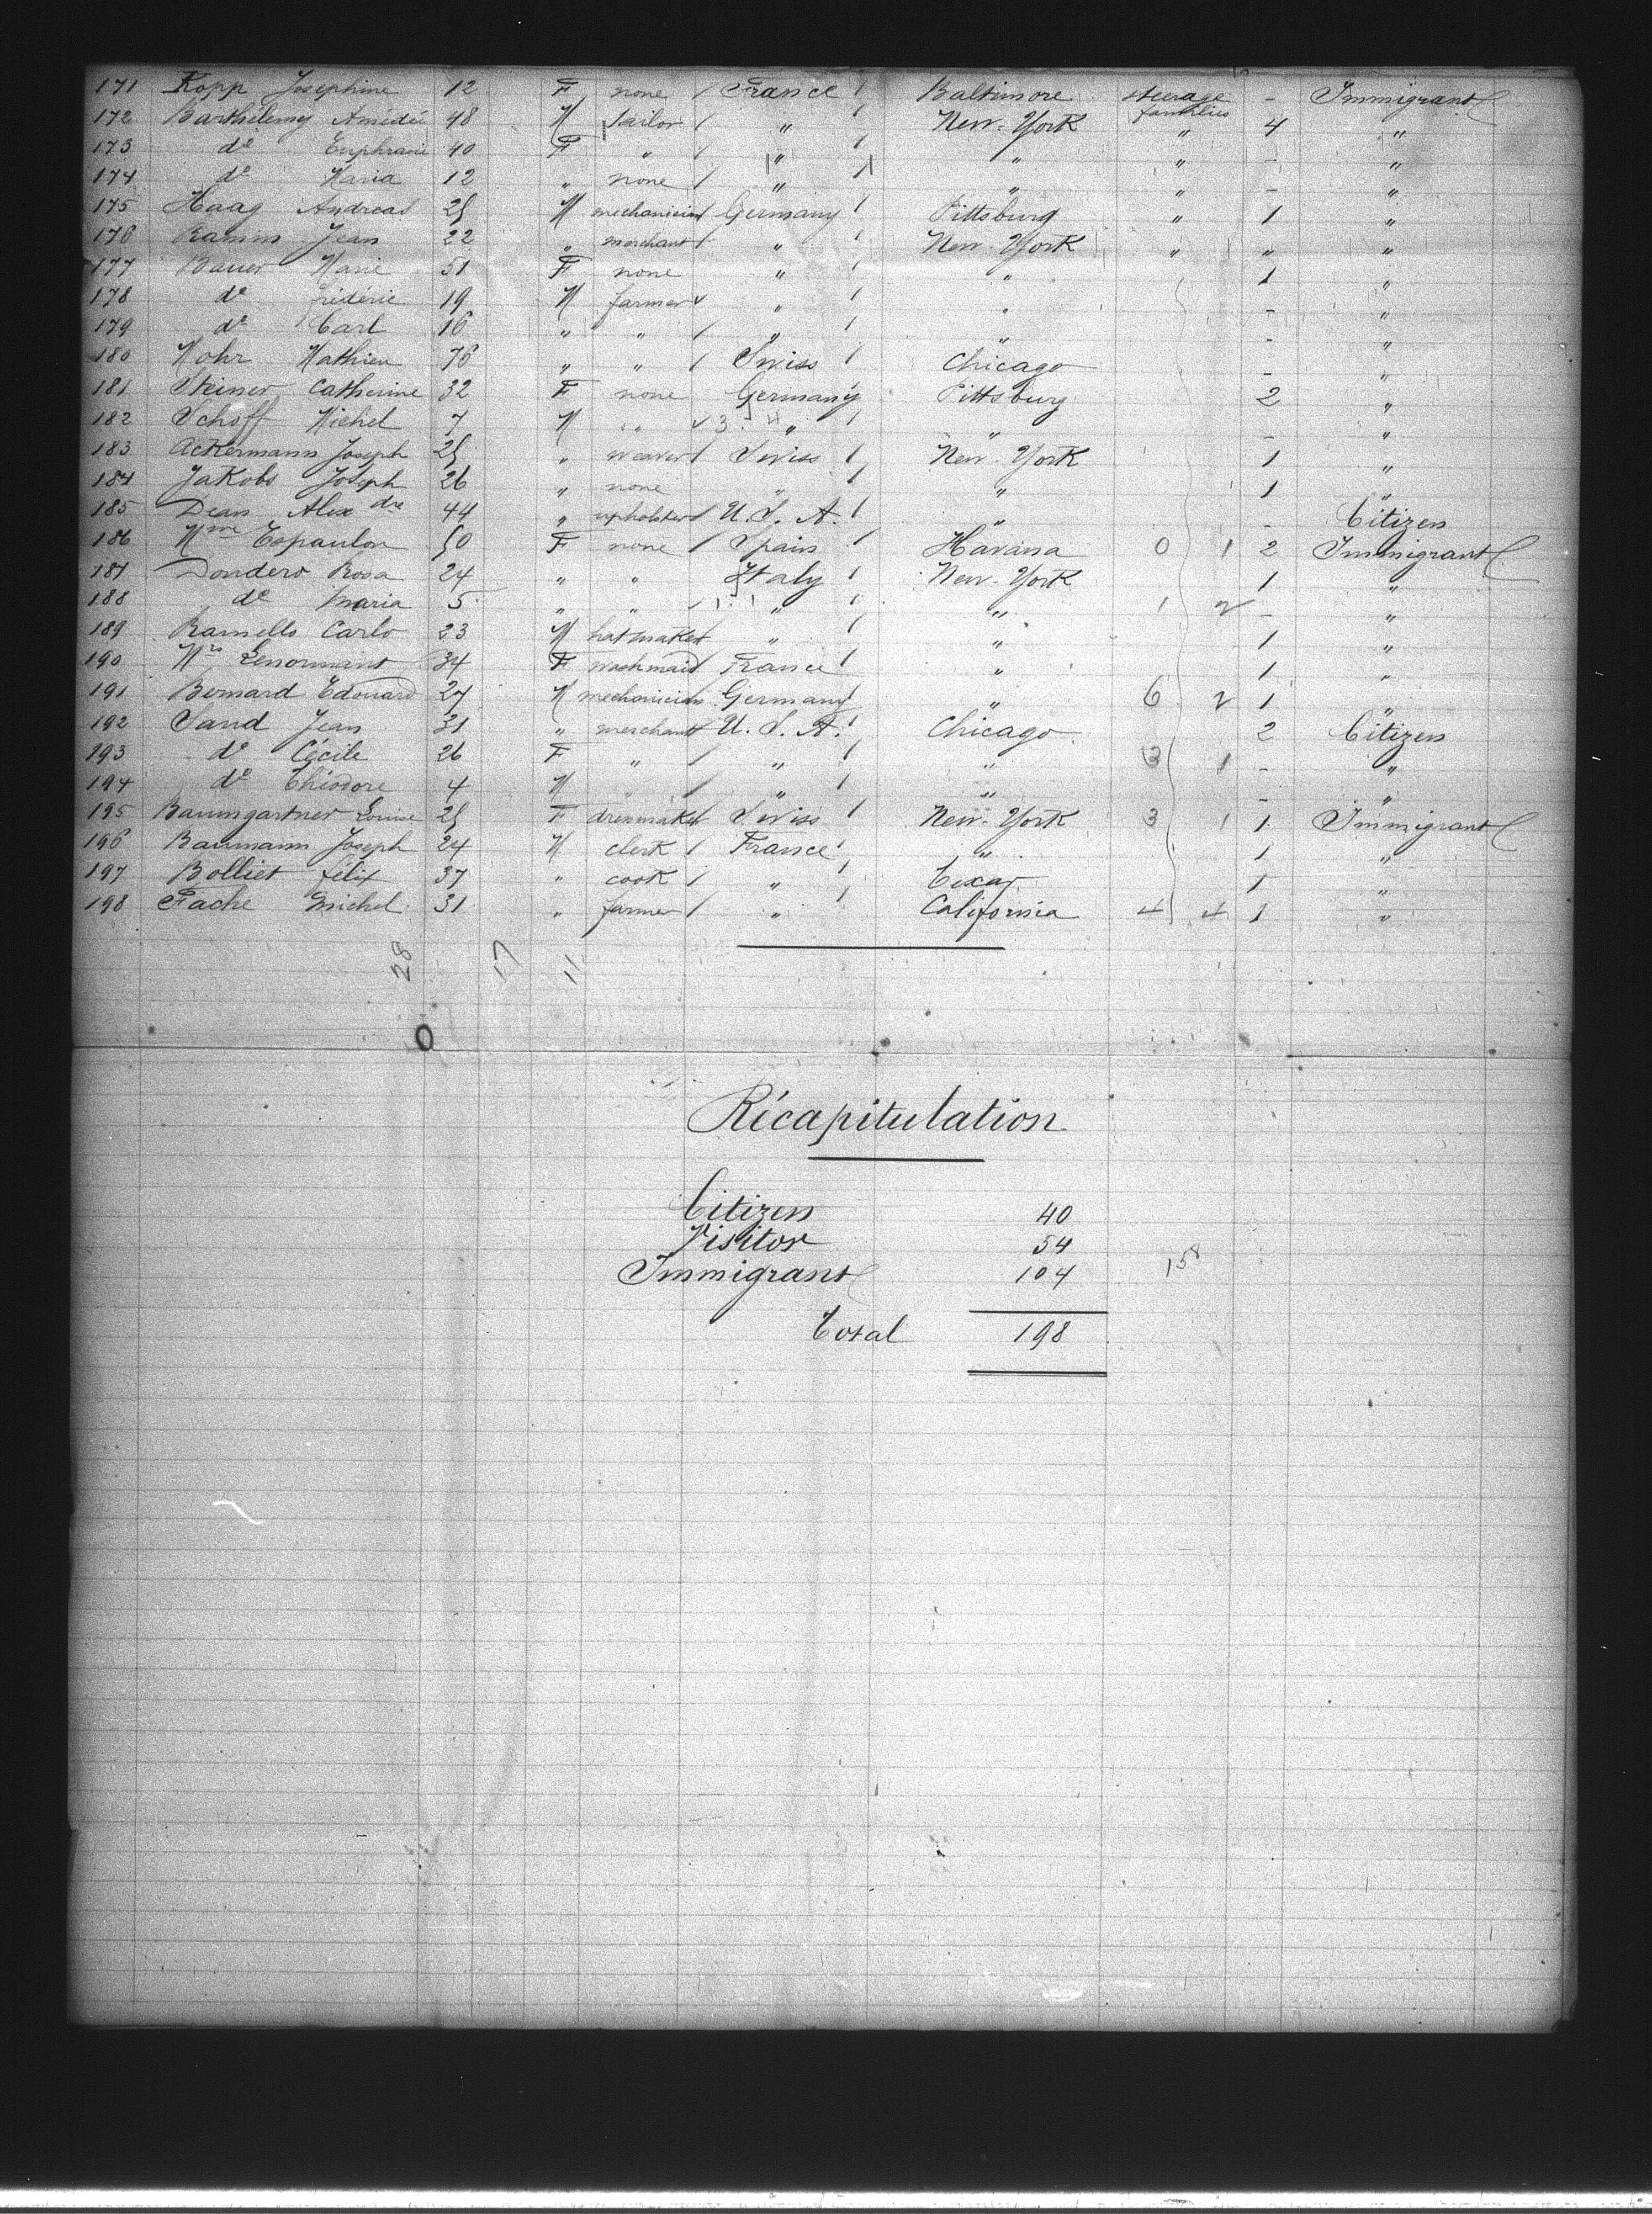 171 Kopp Josephine 12 F none / France / Baltimore steerage - Immigrant
172 Barthélemy Amédée 48 M tailor / " / New-York families " 4 "
173 do Euphrasie 40 F " / " / " " - "
174 do Maria 12 " none / " / " " - "
175 Haag Andreas 25 M mechanician Germany / Pittsburg " 1 "
176 Ramm Jean 22 " merchant / " / New-York " " "
177 Bauer Marie 51 F none " / " 1 "
178 do frédéric 19 M farmer " / " - "
179 do Carl 16 " " / " / " - "
180 Mohr Mathieu 76 " " / Swiss / Chicago - "
181 Steiner Catherine 32 F none Germany Pittsburg 2 "
182 Schoff Michel 7 M " 3. 4 " / " - "
183 Ackermann Joseph 25 " weaver / Swiss / New-York 1 "
184 Jakobs Joseph 26 " none " / " 1 "
185 Dean Alexdre 44 " upholster / U. S. A. / " - Citizen
186 Mme Espaulon 50 F none / Spain / Havana 0 1 2 Immigrant
187 Dondero Rosa 24 " " Italy / New-York 1 "
188 do Maria 5 " " 1. 1 " / " 1 2 - "
189 Ramello Carlo 23 M hatmaker " / " 1 "
190 Mrs Lenormant 34 F washmaid France / " 1 "
191 Bernard Edouard 27 M mechanician Germany / " 6 2 1 "
192 Sand Jean 31 " merchant U. S. A. / Chicago 2 Citizen
193 do Cécile 26 F " / " / " 3 1 - "
194 do Théodore 4 M " / " / " - "
195 Baumgartner Louise 25 F dressmaker Swiss / New-York 3 1 1 Immigrant
196 Baumann Joseph 24 M clerk / France / " 1 "
197 Bolliet félix 37 " cook / " / Texas 1 "
198 Fache Michel 31 " farmer / " California 4 4 1 "
28 17 11
0
Récapitulation
Citizen 40
Visitor 54
Immigrant 104 158
Total 198